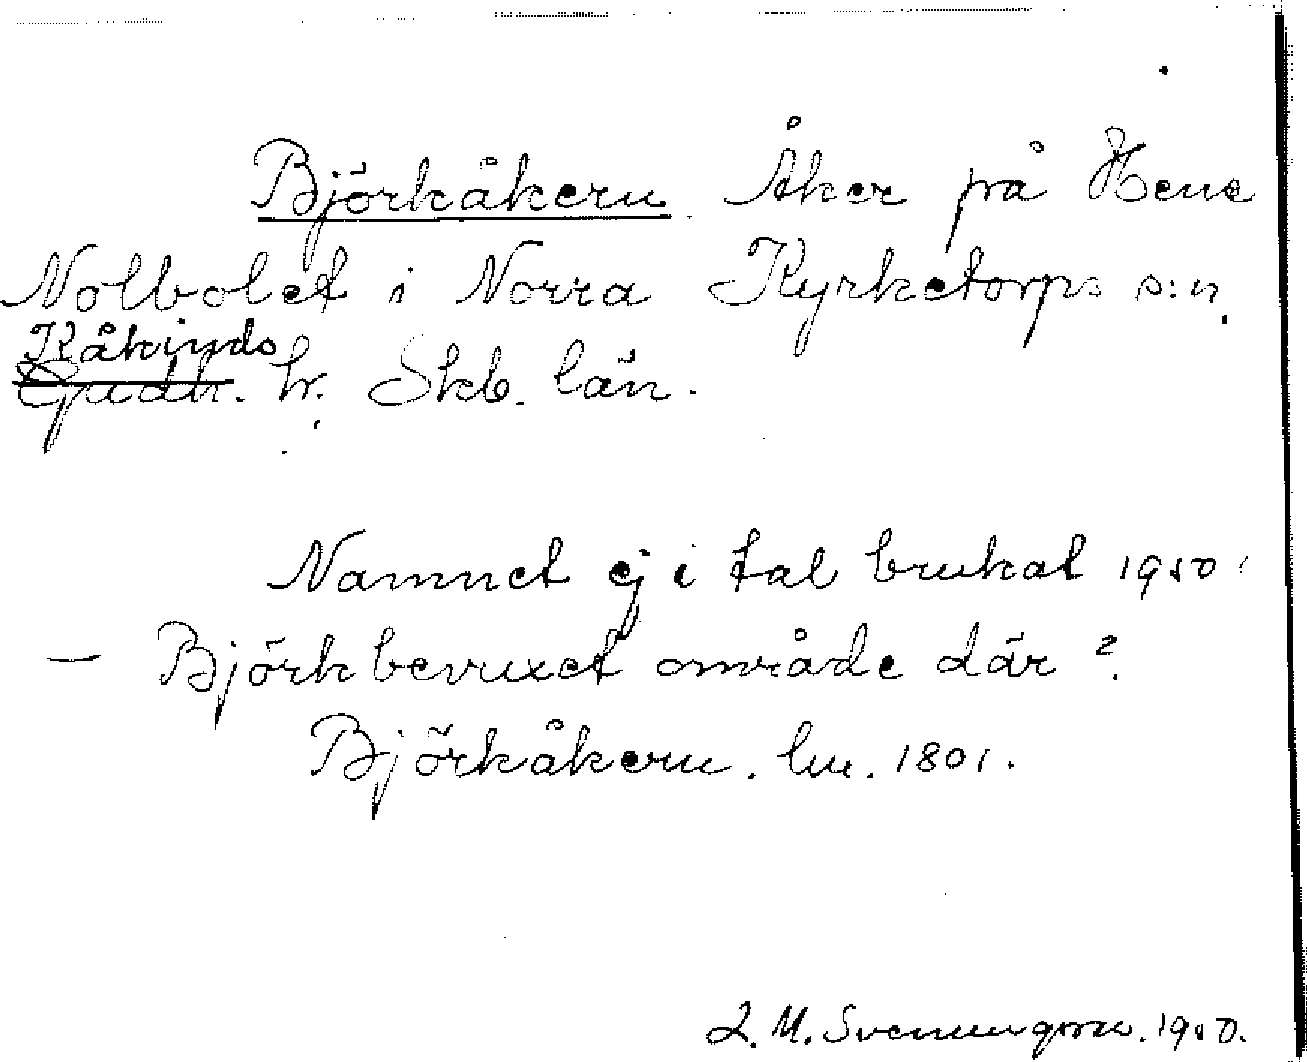 Björkåkern. Åker på Hene
Nolbolet i Norra Kyrketorps s:n,
Kåkinds
Gudh. hr. Skb. län.
Namnet ej i tal brukat 1950.
— Björkbevuxet område där?
Björkåkern. lm. 1801.
L. M. Svenungsson. 1950.